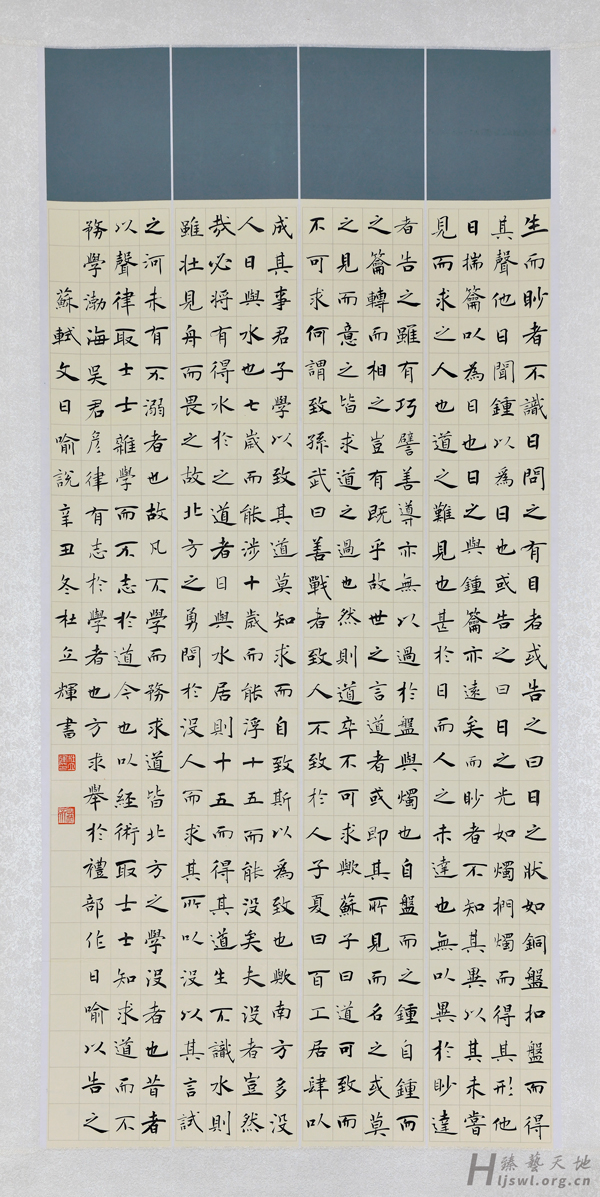 生而眇者不識日問之有目者或告之曰日之狀如銅盤扣盤而得
其聲他日聞鍾以爲日也或告之曰日之光如燭捫燭而得其形他
日揣籥以為日也日之與鍾籥亦遠矣而眇者不知其異以其未嘗
見而求之人也道之難見也甚於日而人之未達也無以異於眇達
者告之雖有巧譬善導亦無以過於盤與燭也自盤而之鍾自鍾而
之籥轉而相之豈有既乎故世之言道者或即其所見而名之或莫
之見而意之皆求道之過也然則道卒不可求歟蘇子曰道可致而
不可求何謂致孫武曰善戰者致人不致於人子夏曰百工居肆以
成其事君子學以致其道莫知求而自致斯以爲致也歟南方多沒
人日與水也七歲而能涉十歲而能浮十五而能沒矣夫沒者豈然
哉必將有得水於之道者日與水居則十五而得其道生不識水則
雖壯見舟而畏之故北方之勇問於沒人而求其所以沒以其言試
之河未有不溺者也故凡不學而務求道皆北方之學沒者也昔者
以聲律取士士雜學而不志於道今也以經術取士士知求道而不
務學渤海吳君彥律有志於學者也方求舉於禮部作日喻以告之
蘇軾文日喻説辛丑冬杜立輝書
臻藝天地
Hljswl.org.cn